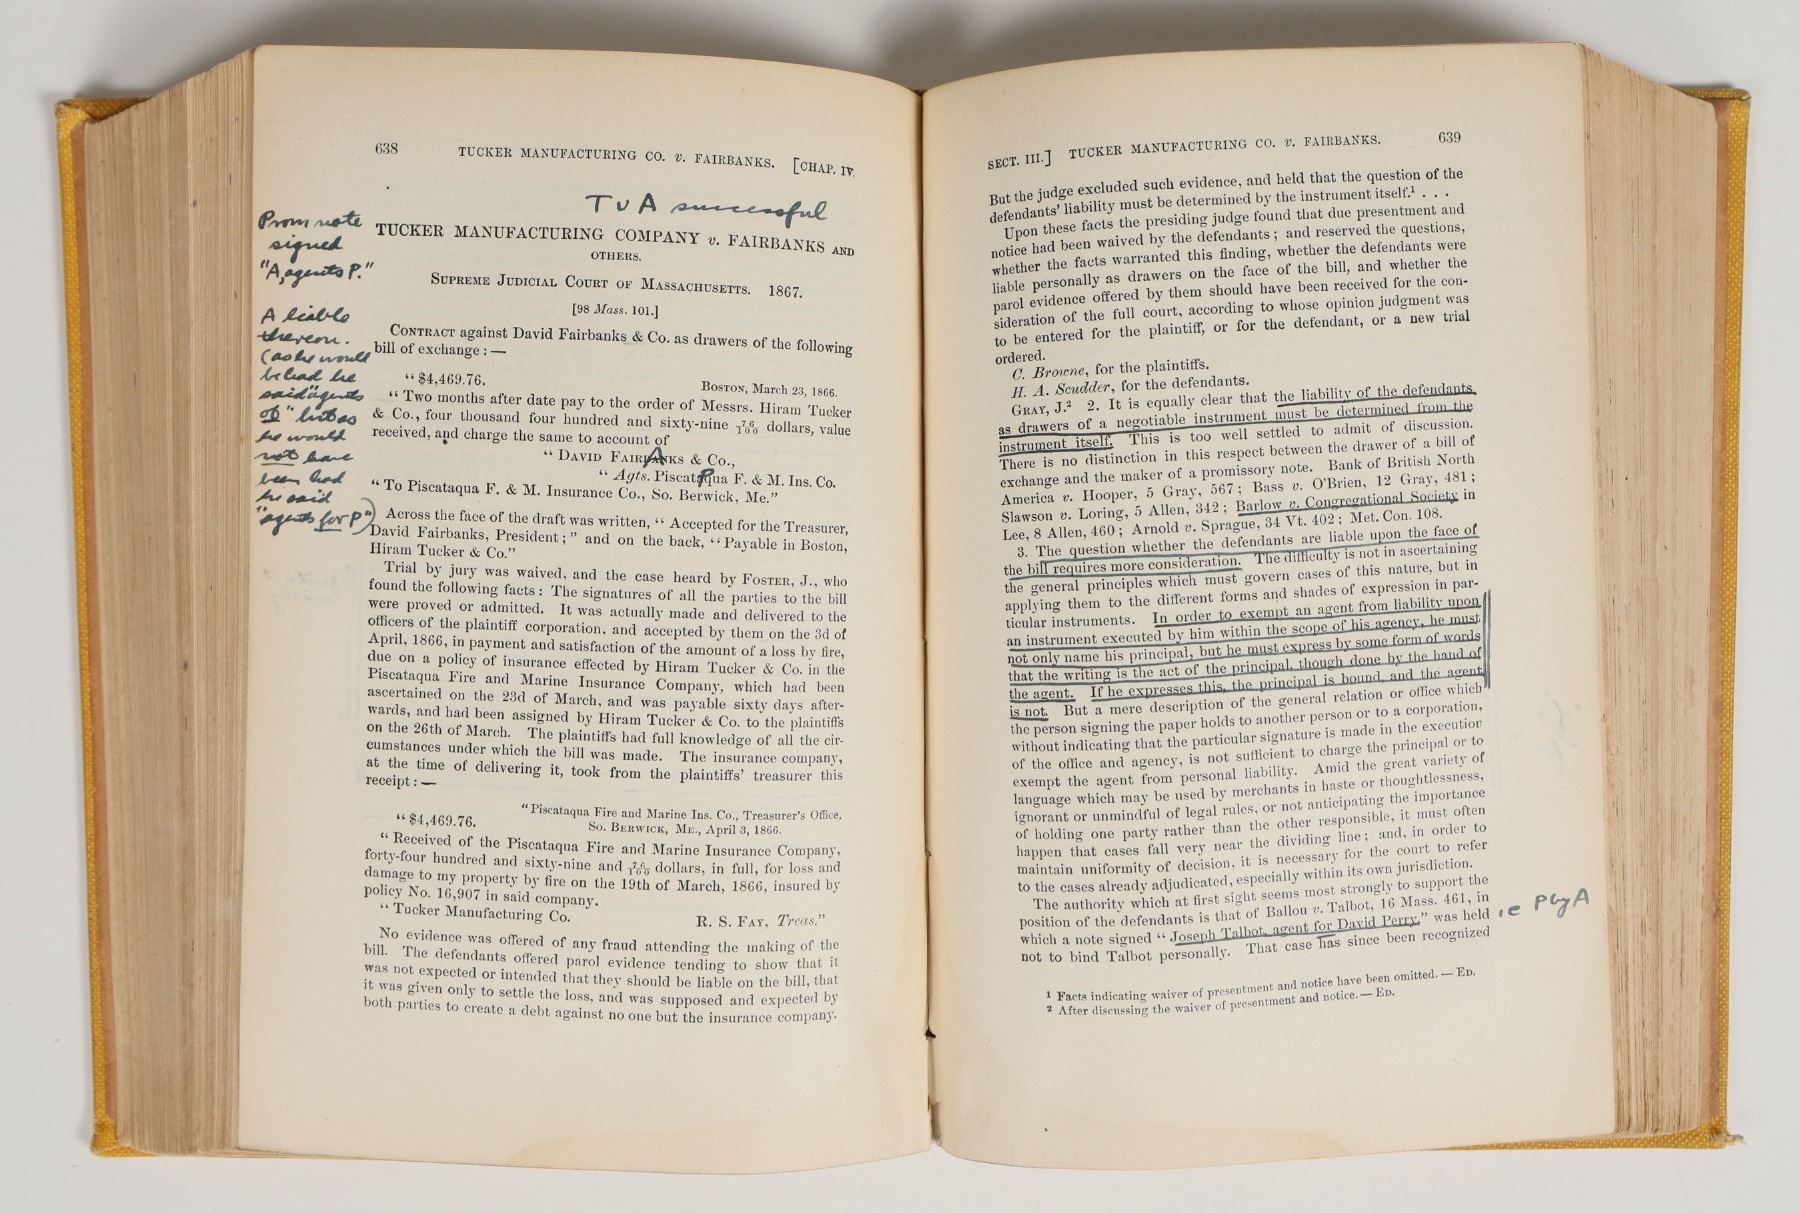 638 TUCKER MANUFACTURING CO. v. FAIRBANKS. [CHAP. IV.
T v A successful
Prom note
signed
"A, agents P."
A liable
thereon.
(as he would
be had he
said "agents
of" but as
he would
not have
been had
he said
"agents for P")
TUCKER MANUFACTURING COMPANY v. FAIRBANKS AND
OTHERS.
SUPREME JUDICIAL COURT OF MASSACHUSETTS. 1867.
[98 Mass. 101.]
CONTRACT against David Fairbanks & Co. as drawers of the following
bill of exchange: —
"$4,469.76. BOSTON, March 23, 1866.
"Two months after date pay to the order of Messrs. Hiram Tucker
& Co., four thousand four hundred and sixty-nine 76/100 dollars, value
received, and charge the same to account of
"DAVID FAIRBANKS & Co.,
A
"Agts. Piscataqua F. & M. Ins. Co.
P
"To Piscataqua F. & M. Insurance Co., So. Berwick, Me."
Across the face of the draft was written, "Accepted for the Treasurer,
David Fairbanks, President;" and on the back, "Payable in Boston,
Hiram Tucker & Co."
Trial by jury was waived, and the case heard by FOSTER, J., who
found the following facts: The signatures of all the parties to the bill
were proved or admitted. It was actually made and delivered to the
officers of the plaintiff corporation, and accepted by them on the 3d of
April, 1866, in payment and satisfaction of the amount of a loss by fire,
due on a policy of insurance effected by Hiram Tucker & Co. in the
Piscataqua Fire and Marine Insurance Company, which had been
ascertained on the 23d of March, and was payable sixty days after-
wards, and had been assigned by Hiram Tucker & Co. to the plaintiffs
on the 26th of March. The plaintiffs had full knowledge of all the cir-
cumstances under which the bill was made. The insurance company,
at the time of delivering it, took from the plaintiffs' treasurer this
receipt: —
"Piscataqua Fire and Marine Ins. Co., Treasurer's Office,
"$4,469.76. So. BERWICK, ME., April 3, 1866.
"Received of the Piscataqua Fire and Marine Insurance Company,
forty-four hundred and sixty-nine and 76/100 dollars, in full, for loss and
damage to my property by fire on the 19th of March, 1866, insured by
policy No. 16,907 in said company.
"Tucker Manufacturing Co. R. S. FAY, Treas."
No evidence was offered of any fraud attending the making of the
bill. The defendants offered parol evidence tending to show that it
was not expected or intended that they should be liable on the bill, that
it was given only to settle the loss, and was supposed and expected by
both parties to create a debt against no one but the insurance company.
SECT. III.] TUCKER MANUFACTURING CO. v. FAIRBANKS. 639
But the judge excluded such evidence, and held that the question of the
defendants' liability must be determined by the instrument itself.¹ . . .
Upon these facts the presiding judge found that due presentment and
notice had been waived by the defendants; and reserved the questions,
whether the facts warranted this finding, whether the defendants were
liable personally as drawers on the face of the bill, and whether the
parol evidence offered by them should have been received for the con-
sideration of the full court, according to whose opinion judgment was
to be entered for the plaintiff, or for the defendant, or a new trial
ordered.
C. Browne, for the plaintiffs.
H. A. Scudder, for the defendants.
GRAY, J.² 2. It is equally clear that the liability of the defendants
as drawers of a negotiable instrument must be determined from the
instrument itself. This is too well settled to admit of discussion.
There is no distinction in this respect between the drawer of a bill of
exchange and the maker of a promissory note. Bank of British North
America v. Hooper, 5 Gray, 567; Bass v. O'Brien, 12 Gray, 481;
Slawson v. Loring, 5 Allen, 342; Barlow v. Congregational Society in
Lee, 8 Allen, 460; Arnold v. Sprague, 34 Vt. 402; Met. Con. 108.
3. The question whether the defendants are liable upon the face of
the bill requires more consideration. The difficulty is not in ascertaining
the general principles which must govern cases of this nature, but in
applying them to the different forms and shades of expression in par-
ticular instruments. In order to exempt an agent from liability upon
an instrument executed by him within the scope of his agency, he must
not only name his principal, but he must express by some form of words
that the writing is the act of the principal, though done by the hand of
the agent. If he expresses this, the principal is bound, and the agent
is not. But a mere description of the general relation or office which
the person signing the paper holds to another person or to a corporation,
without indicating that the particular signature is made in the execution
of the office and agency, is not sufficient to charge the principal or to
exempt the agent from personal liability. Amid the great variety of
language which may be used by merchants in haste or thoughtlessness,
ignorant or unmindful of legal rules, or not anticipating the importance
of holding one party rather than the other responsible, it must often
happen that cases fall very near the dividing line; and, in order to
maintain uniformity of decision, it is necessary for the court to refer
to the cases already adjudicated, especially within its own jurisdiction.
The authority which at first sight seems most strongly to support the
position of the defendants is that of Ballou v. Talbot, 16 Mass. 461, in
which a note signed "Joseph Talbot, agent for David Perry," was held
not to bind Talbot personally. That case has since been recognized
ie P by A
¹ Facts indicating waiver of presentment and notice have been omitted. — ED.
² After discussing the waiver of presentment and notice. — ED.